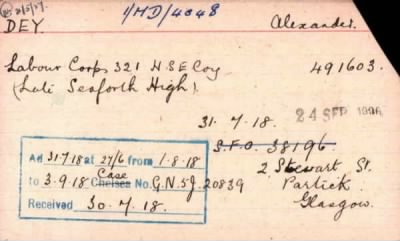 1/MD/4048
DEY.
Alexander.
Labour Corps 321 H S E Coy
491603.
(Late Seaforth High).
31. 7. 18.
24 SEP 1996
S.F.O. 38196.
2 Stewart St.
Partick.
Glasgow.
Ad 31.7.18 at 27/6 from 1.8.18
Case
to 3.9.18 Chelsea No. G.N.5J. 20839
Received 30.7.18.